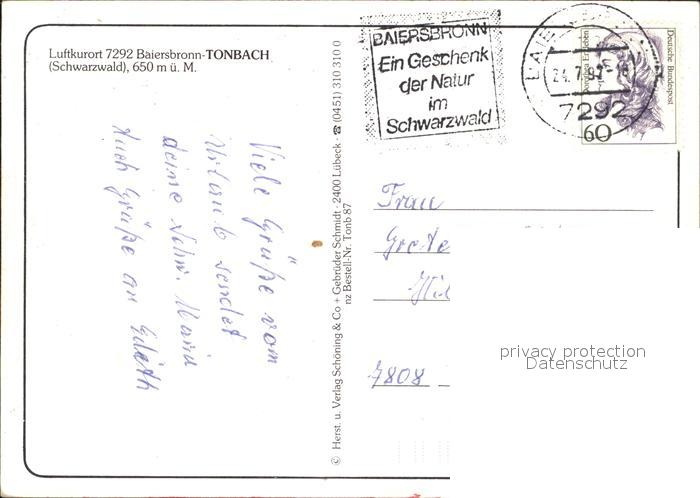 Luftkurort 7292 Baiersbronn-TONBACH
(Schwarzwald), 650 m ü. M.
Viele Grüße vom
Urlaub sendet
deine Schw. Maria
Auch Grüße an Edith
© Herst. u. Verlag Schöning & Co + Gebrüder Schmidt · 2400 Lübeck · ☎ (0451) 310 310 0
nz Bestell-Nr. Tonb 87
BAIERSBRONN
Ein Geschenk
der Natur
im
Schwarzwald
24.7.
7292
Deutsche Bundespost
60
Frau
Grete
7808
privacy protection
Datenschutz